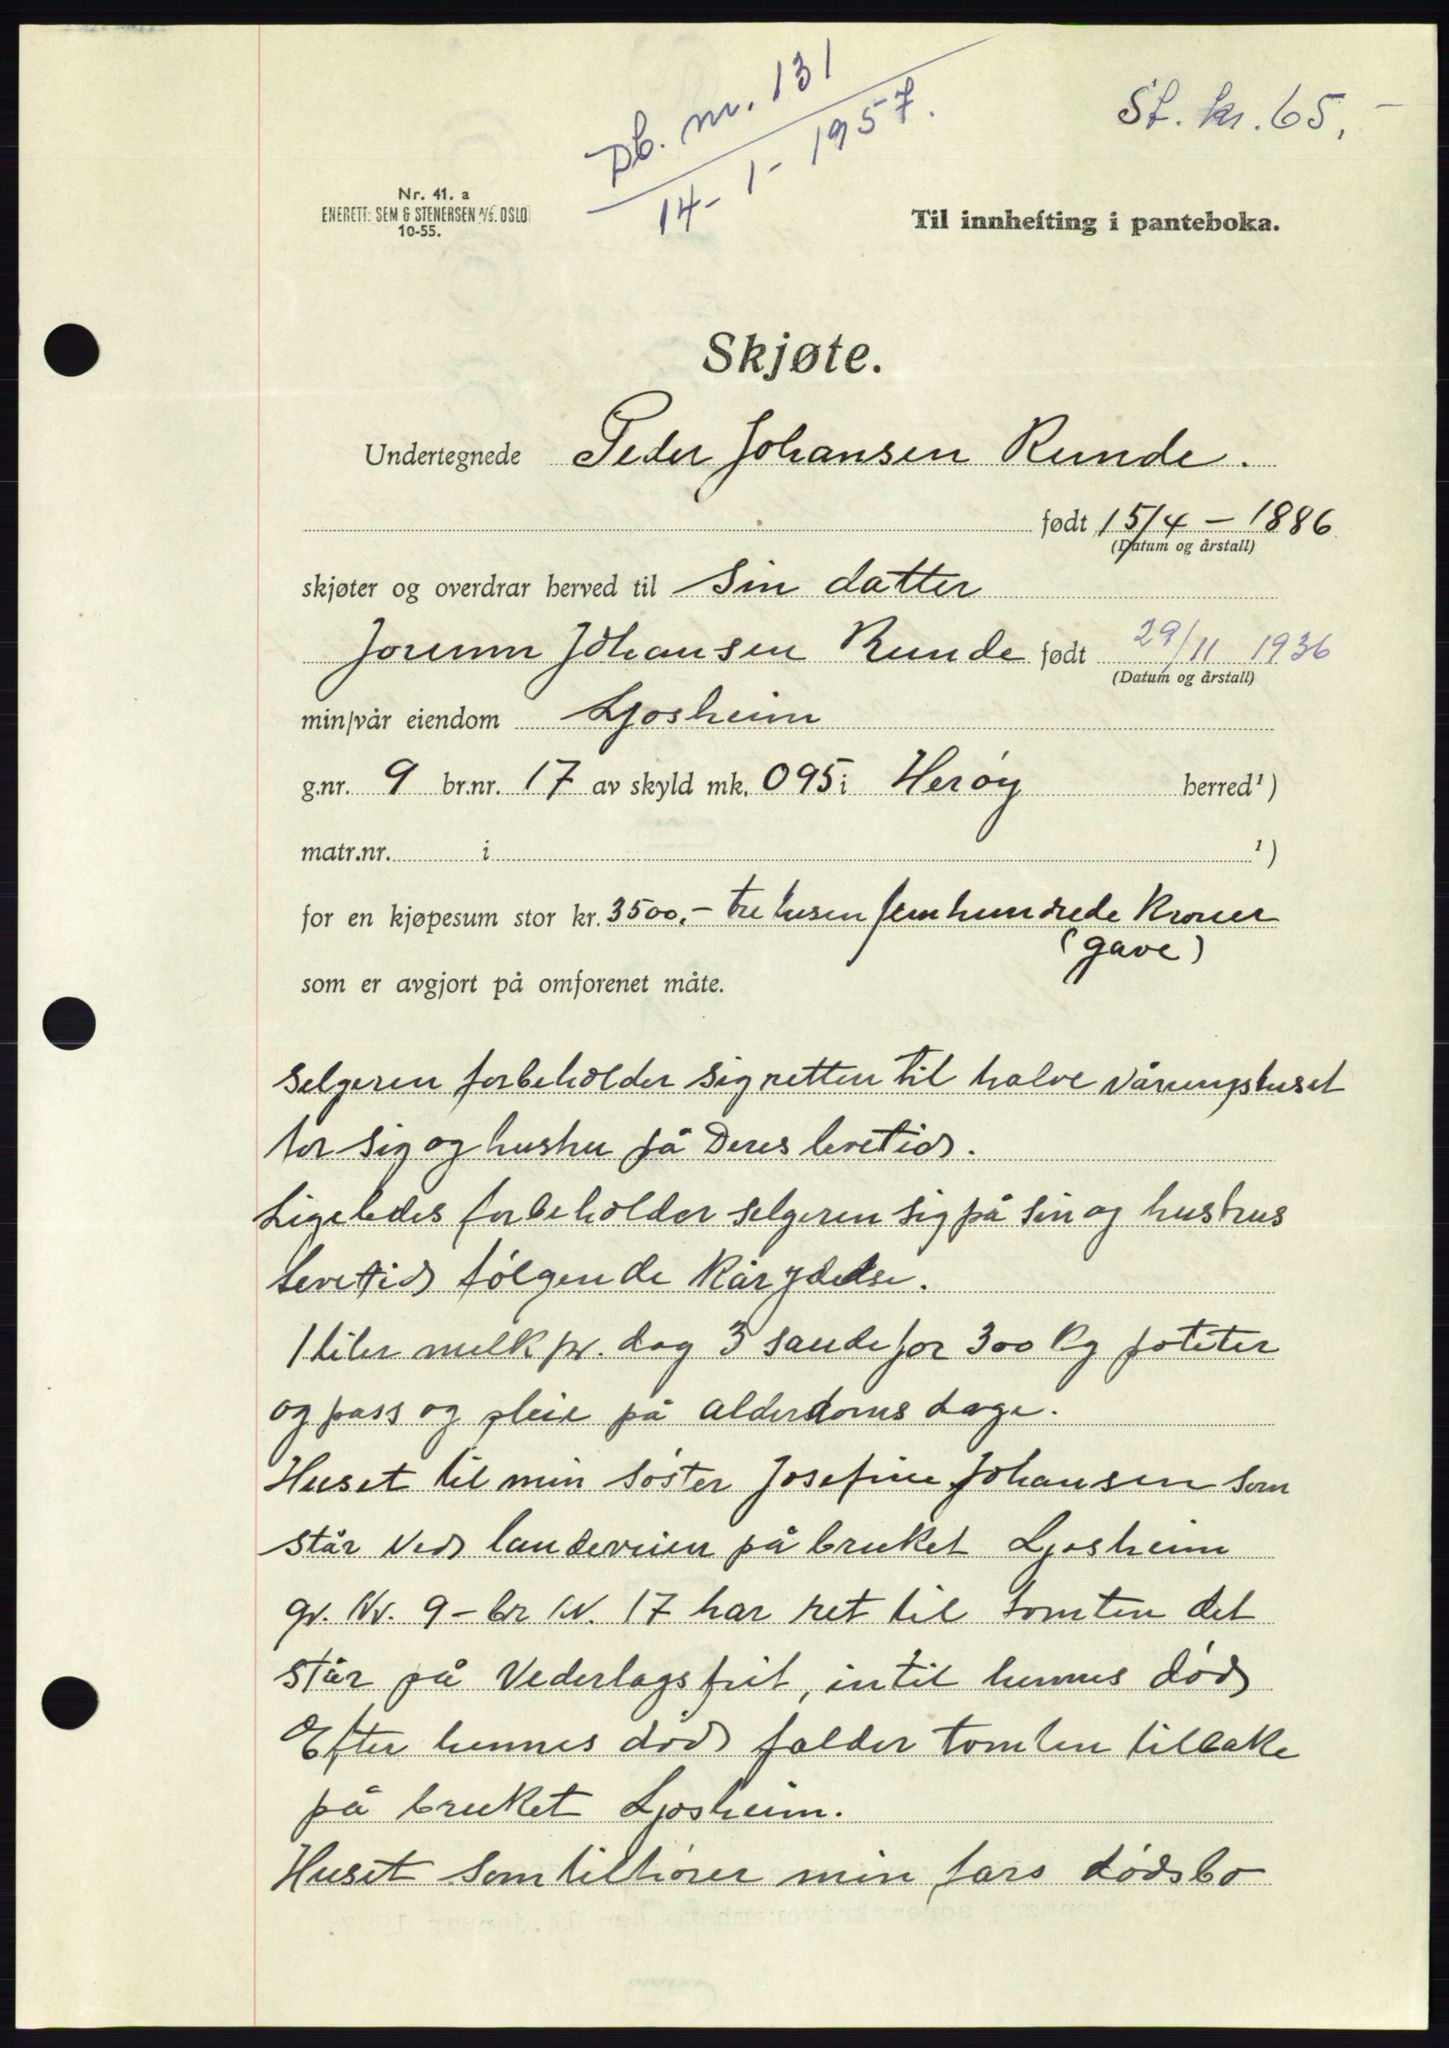 pb. nr. 131
14-1-1957.
St. kr. 65,-
Nr. 41. a
ENERETT: SEM & STENERSEN A/S. OSLO
10-55.
Til innhefting i panteboka.
Skjøte.
Undertegnede Peder Johansen Runde.
født 15/4 - 1886
(Datum og årstall)
skjøter og overdrar herved til sin datter
Jorunn Johansen Runde født 29/11 1936
(Datum og årstall)
min/vår eiendom Ljosheim
g.nr. 9 br.nr. 17 av skyld mk. 095 i Herøy herred¹)
matr.nr. i ¹)
for en kjøpesum stor kr. 3500.- tre tusen femhundrede Kroner
(gave)
som er avgjort på omforenet måte.
Selgeren forbeholder sig retten til halve våningshuset
for sig og hustru på Deres levetid.
Ligeledes forbeholder selgeren sig på sin og hustrus
levetid følgende Kårydelse.
1 liter melk pr. dag 3 sauefor 300 Kg poteter
og pass og pleie på alderdoms dage.
Huset til min søster Josefine Johansen som
står ved landeveien på bruket Ljosheim
gr. Nr. 9 - br Nr. 17 har ret til tomten det
står på Vederlagsfrit, intil hennes død
Efter hennes død falder tomten tilbake
på bruket Ljosheim.
Huset som tilhører min fars dødsbo